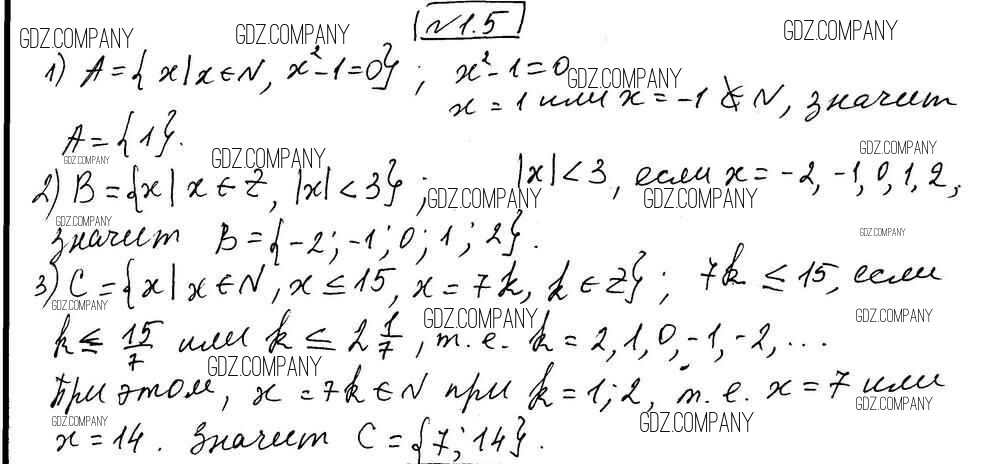 №1.5
GDZ.COMPANY GDZ.COMPANY GDZ.COMPANY
1) A = { x | x ∈ N, x² - 1 = 0 } ; x² - 1 = 0
GDZ.COMPANY
x = 1 или x = -1 ∉ N, значит
A = { 1 }.
GDZ.COMPANY GDZ.COMPANY GDZ.COMPANY
2) B = { x | x ∈ Z, |x| < 3 } ; |x| < 3, если x = -2, -1, 0, 1, 2,
GDZ.COMPANY GDZ.COMPANY
GDZ.COMPANY GDZ.COMPANY
значит B = { -2 ; -1 ; 0 ; 1 ; 2 }.
3) C = { x | x ∈ N, x ≤ 15, x = 7k, k ∈ Z } ; 7k ≤ 15, если
GDZ.COMPANY GDZ.COMPANY GDZ.COMPANY
k ≤ 15/7 или k ≤ 2 1/7, т.е. k = 2, 1, 0, -1, -2, ...
GDZ.COMPANY
При этом, x = 7k ∈ N при k = 1; 2, т.е. x = 7 или
GDZ.COMPANY GDZ.COMPANY GDZ.COMPANY
x = 14. Значит C = { 7 ; 14 }.